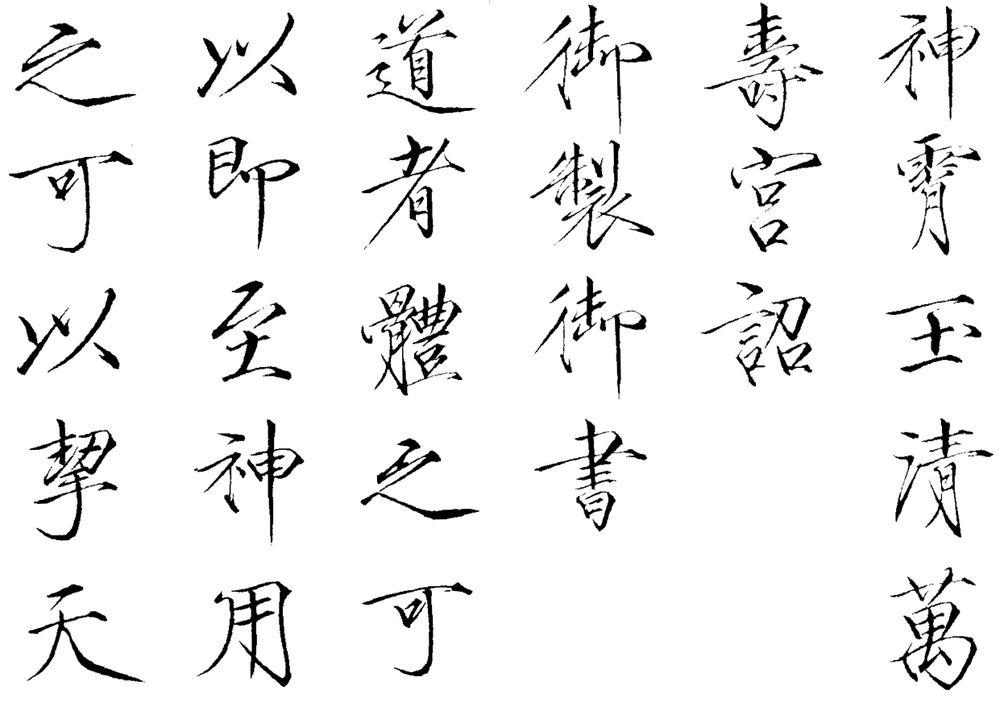 神霄玉清萬
壽宮詔
御製御書
道者體之可
以即至神用
之可以挈天